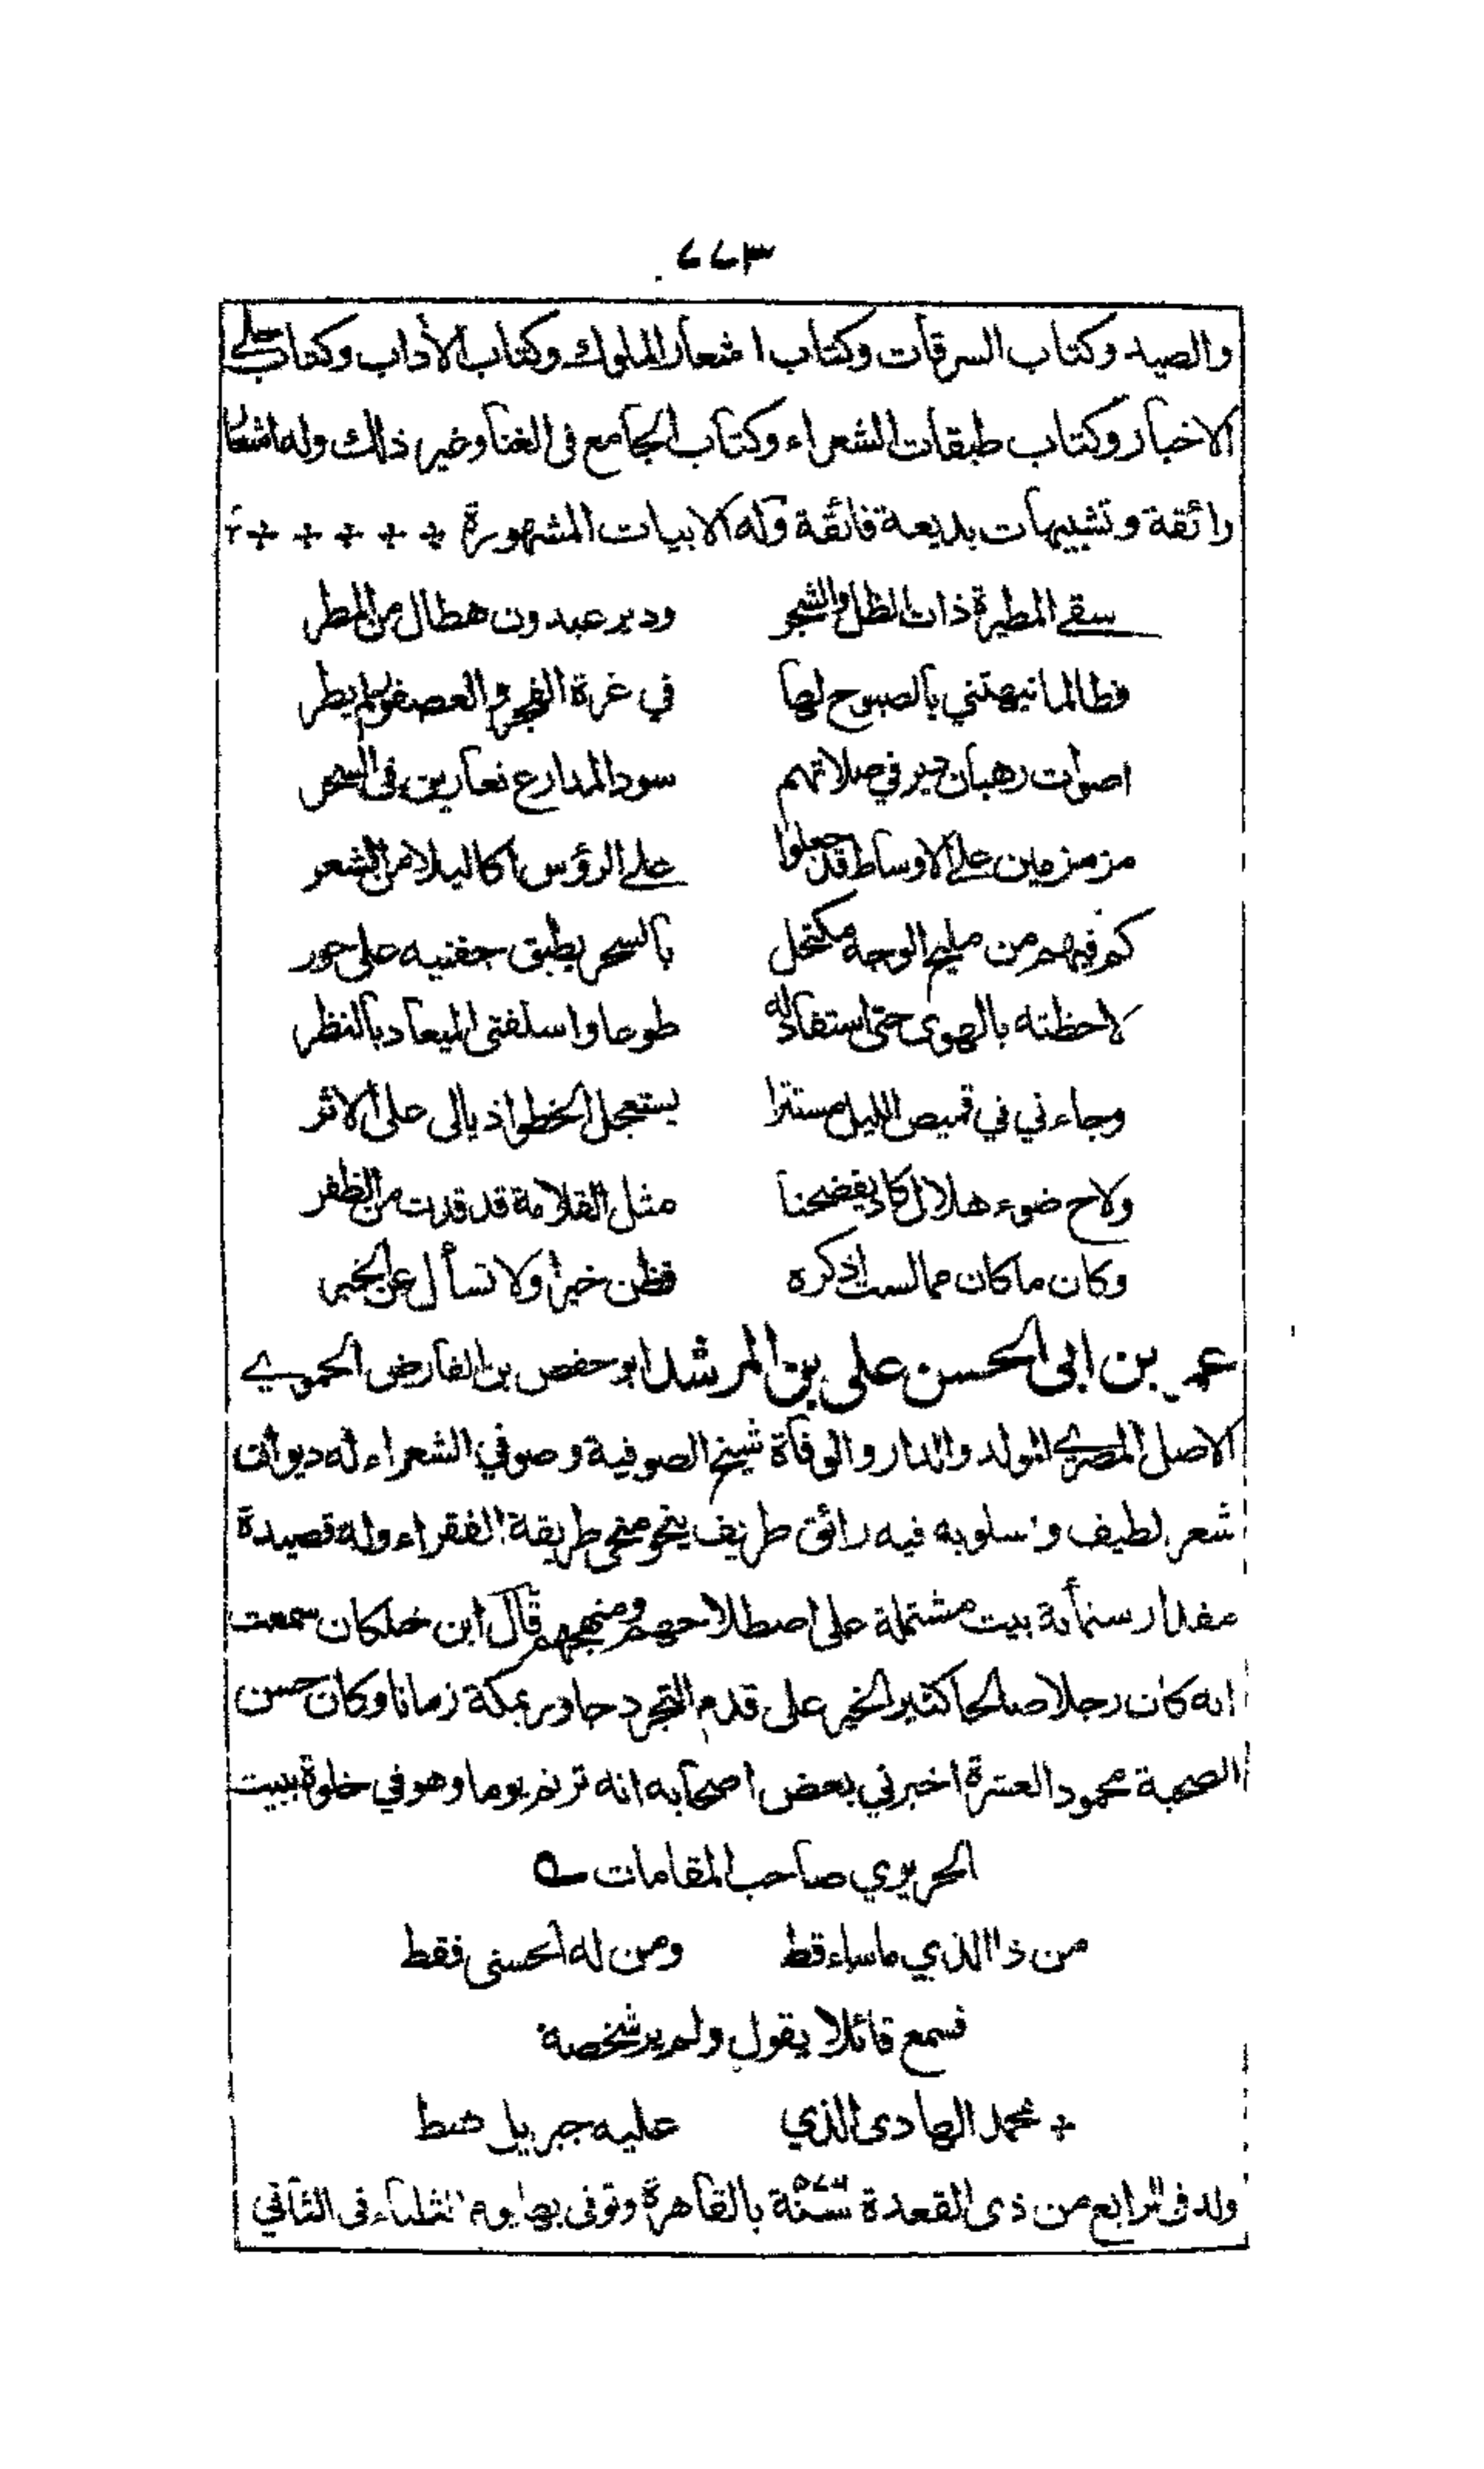 ٢٢٣
والصيد وكتاب السرقات وكتاب اشعار الملوك وكتاب الآداب وكتاب حلي
الاخبار وكتاب طبقات الشعراء وكتاب الجامع فى الغنا وغير ذلك وله اشعار
رائقة وتشبيهات بديعة فائقة وله الابيات المشهورة
سقى المطيرة ذات الظل والشجر ودير عبدون هطال من المطر
فطالما نبهتني بالصبوح لها في غرة الفجر والعصفور لم يطر
اصوات رهبان دير في صلاتهم سود المدارع نعارين فى السحر
مزمزمين على الاوساط قد جعلوا على الرؤس اكاليلا من الشعر
كم فيهم من مليح الوجه مكتحل بالسحر يطبق جفنيه على حور
لاحظته بالهوى حتى استفاد له طوعا واسلفنى الميعاد بالنظر
وجاءني في قميص الليل مستترا يستعجل الخطو اذيالى على الاثر
ولاح ضوء هلال كاد يفضحنا مثل القلامة قد قدت من الظفر
وكان ما كان مما لست اذكره فظن خيرا ولا تسأل عن الخبر
عمر بن ابى الحسن على بن المرشد ابو حفص بن الفارض الحموي
الاصل المصري المولد والدار والوفاة شيخ الصوفية وصوفي الشعراء له ديوان
شعر لطيف واسلوبه فيه رائق ظريف ينحو منحى طريقة الفقراء وله قصيدة
مقدار ستمأية بيت مشتملة على اصطلاحهم ومنهجهم قال ابن خلكان سمعت
انه كان رجلا صالحا كثير الخير على قدم التجرد جاور بمكة زمانا وكان حسن
الصحبة محمود العشرة اخبرني بعض اصحابه انه ترنم يوما وهو في خلوة ببيت
الحريري صاحب المقامات
من ذا الذي ما ساء قط ومن له الحسنى فقط
فسمع قائلا يقول ولم ير شخصه
محمد الهادى الذي عليه جبريل هبط
ولد فى الرابع من ذى القعدة سنة بالقاهرة وتوفى بها يوم الثلثاء فى الثاني